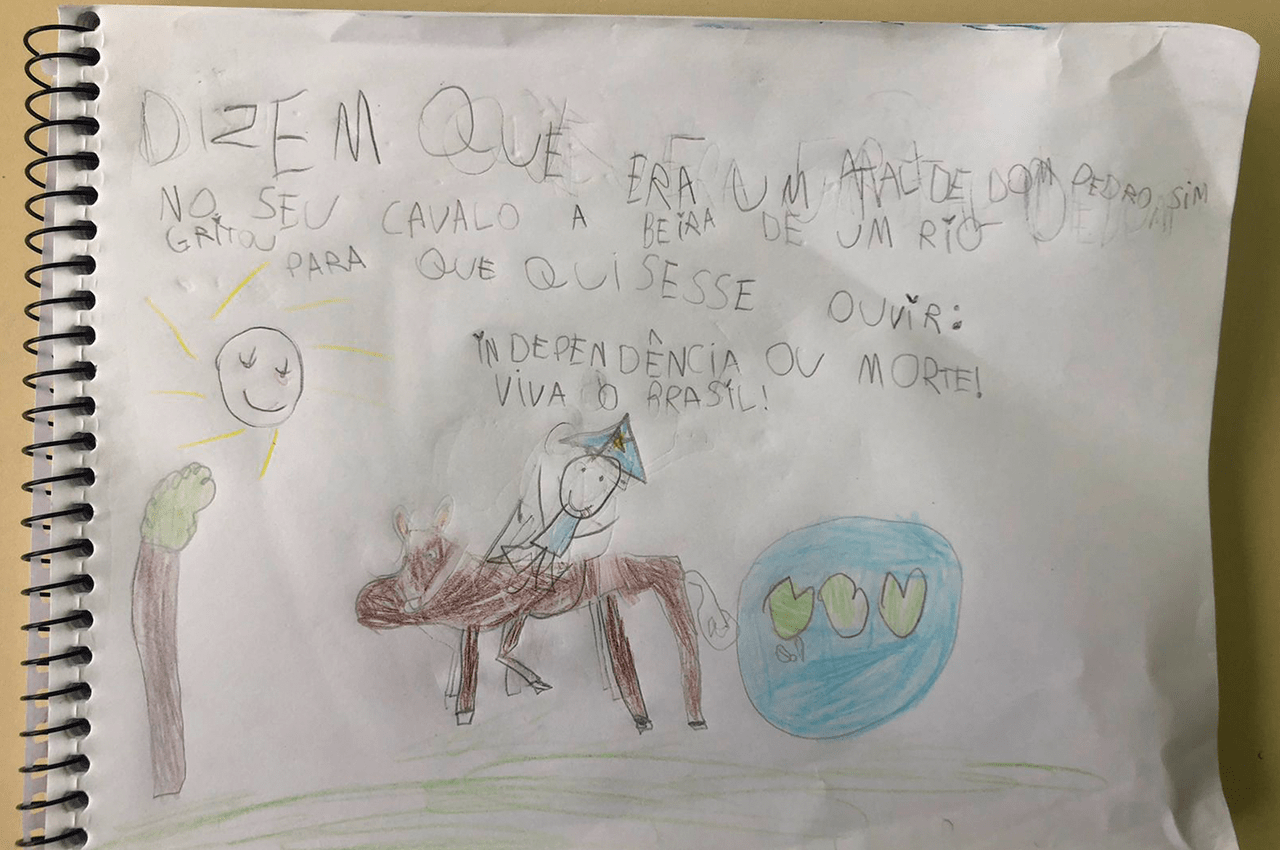 DIZEM QUE ERA UM DE DOM PEDRO, SIM
NO SEU CAVALO A BEIRA DE UM RIO
GRITOU PARA QUE QUISESSE OUVIR:
INDEPENDÊNCIA OU MORTE!
VIVA O BRASIL!